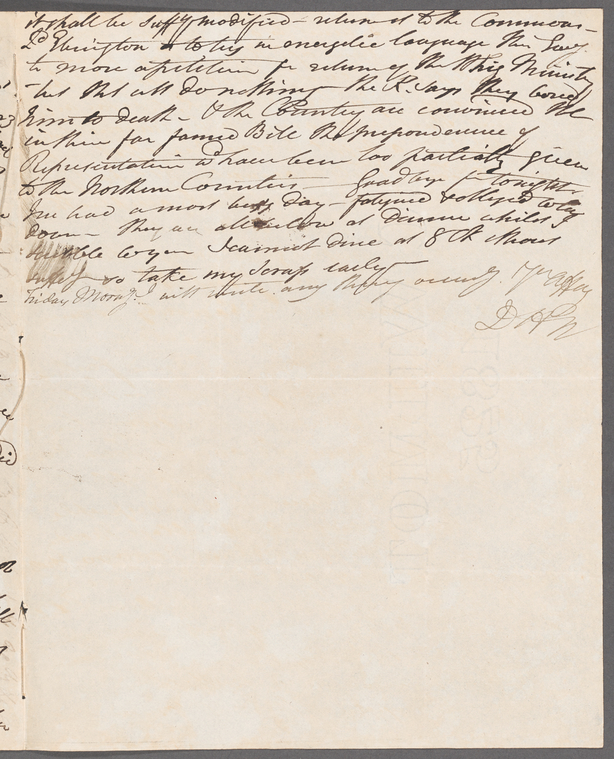 it shall be suffy modified - return it to the Commons -
Ld Ebrington is to try in energetic language the Govt
to move a petition for return of the Whig Ministry
- but this will do nothing - the K. says they bored
him to death - & the Country are convinced
in their far famed Bill the preponderance of
Representation wd have been too partially given
to the Northern Counties - Good bye for tonight
Ive had a most busy day - fatigued & obliged to lay
down - they are all below at Dinner whilst I
to you I cannot dine at 8 it
so take my scrap early
Friday Morng. I will write any thing occurs. Yr Affey